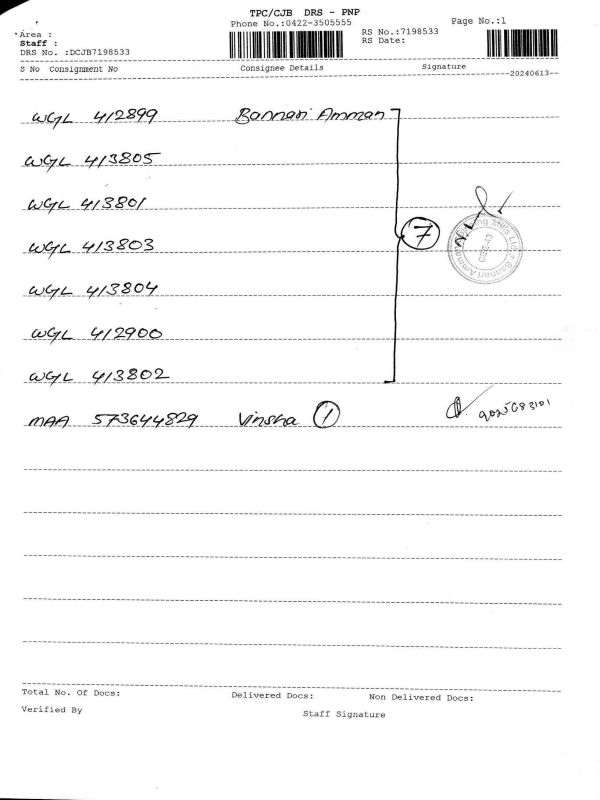 TPC/CJB DRS - PNP
Phone No.:0422-3505555
Page No.:1
Area :
Staff :
DRS No. :DCJB7198533
RS No.:7198533
RS Date:
S No Consignment No Consignee Details Signature
20240613
WGL 412899 Bannari Amman
WGL 413805
WGL 413801
WGL 413803
7
WGL 413804
WGL 412900
WGL 413802
MAA 573644829 Vinsha 1
Total No. Of Docs: Delivered Docs: Non Delivered Docs:
Verified By Staff Signature